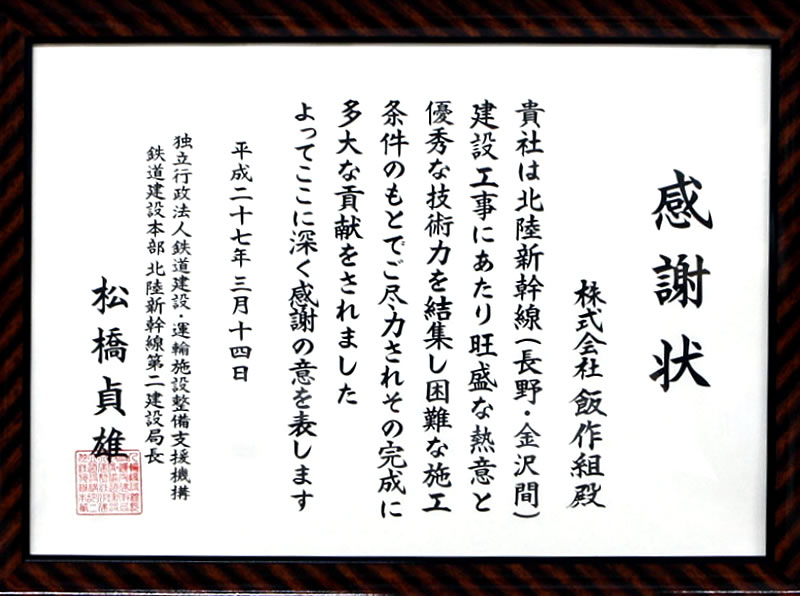 感謝状
株式会社 飯作組殿
貴社は北陸新幹線(長野・金沢間)
建設工事にあたり旺盛な熱意と
優秀な技術力を結集し困難な施工
条件のもとでご尽力されその完成に
多大な貢献をされました
よってここに深く感謝の意を表します
平成二十七年三月十四日
独立行政法人鉄道建設・運輸施設整備支援機構
鉄道建設本部 北陸新幹線第二建設局長
松橋貞雄